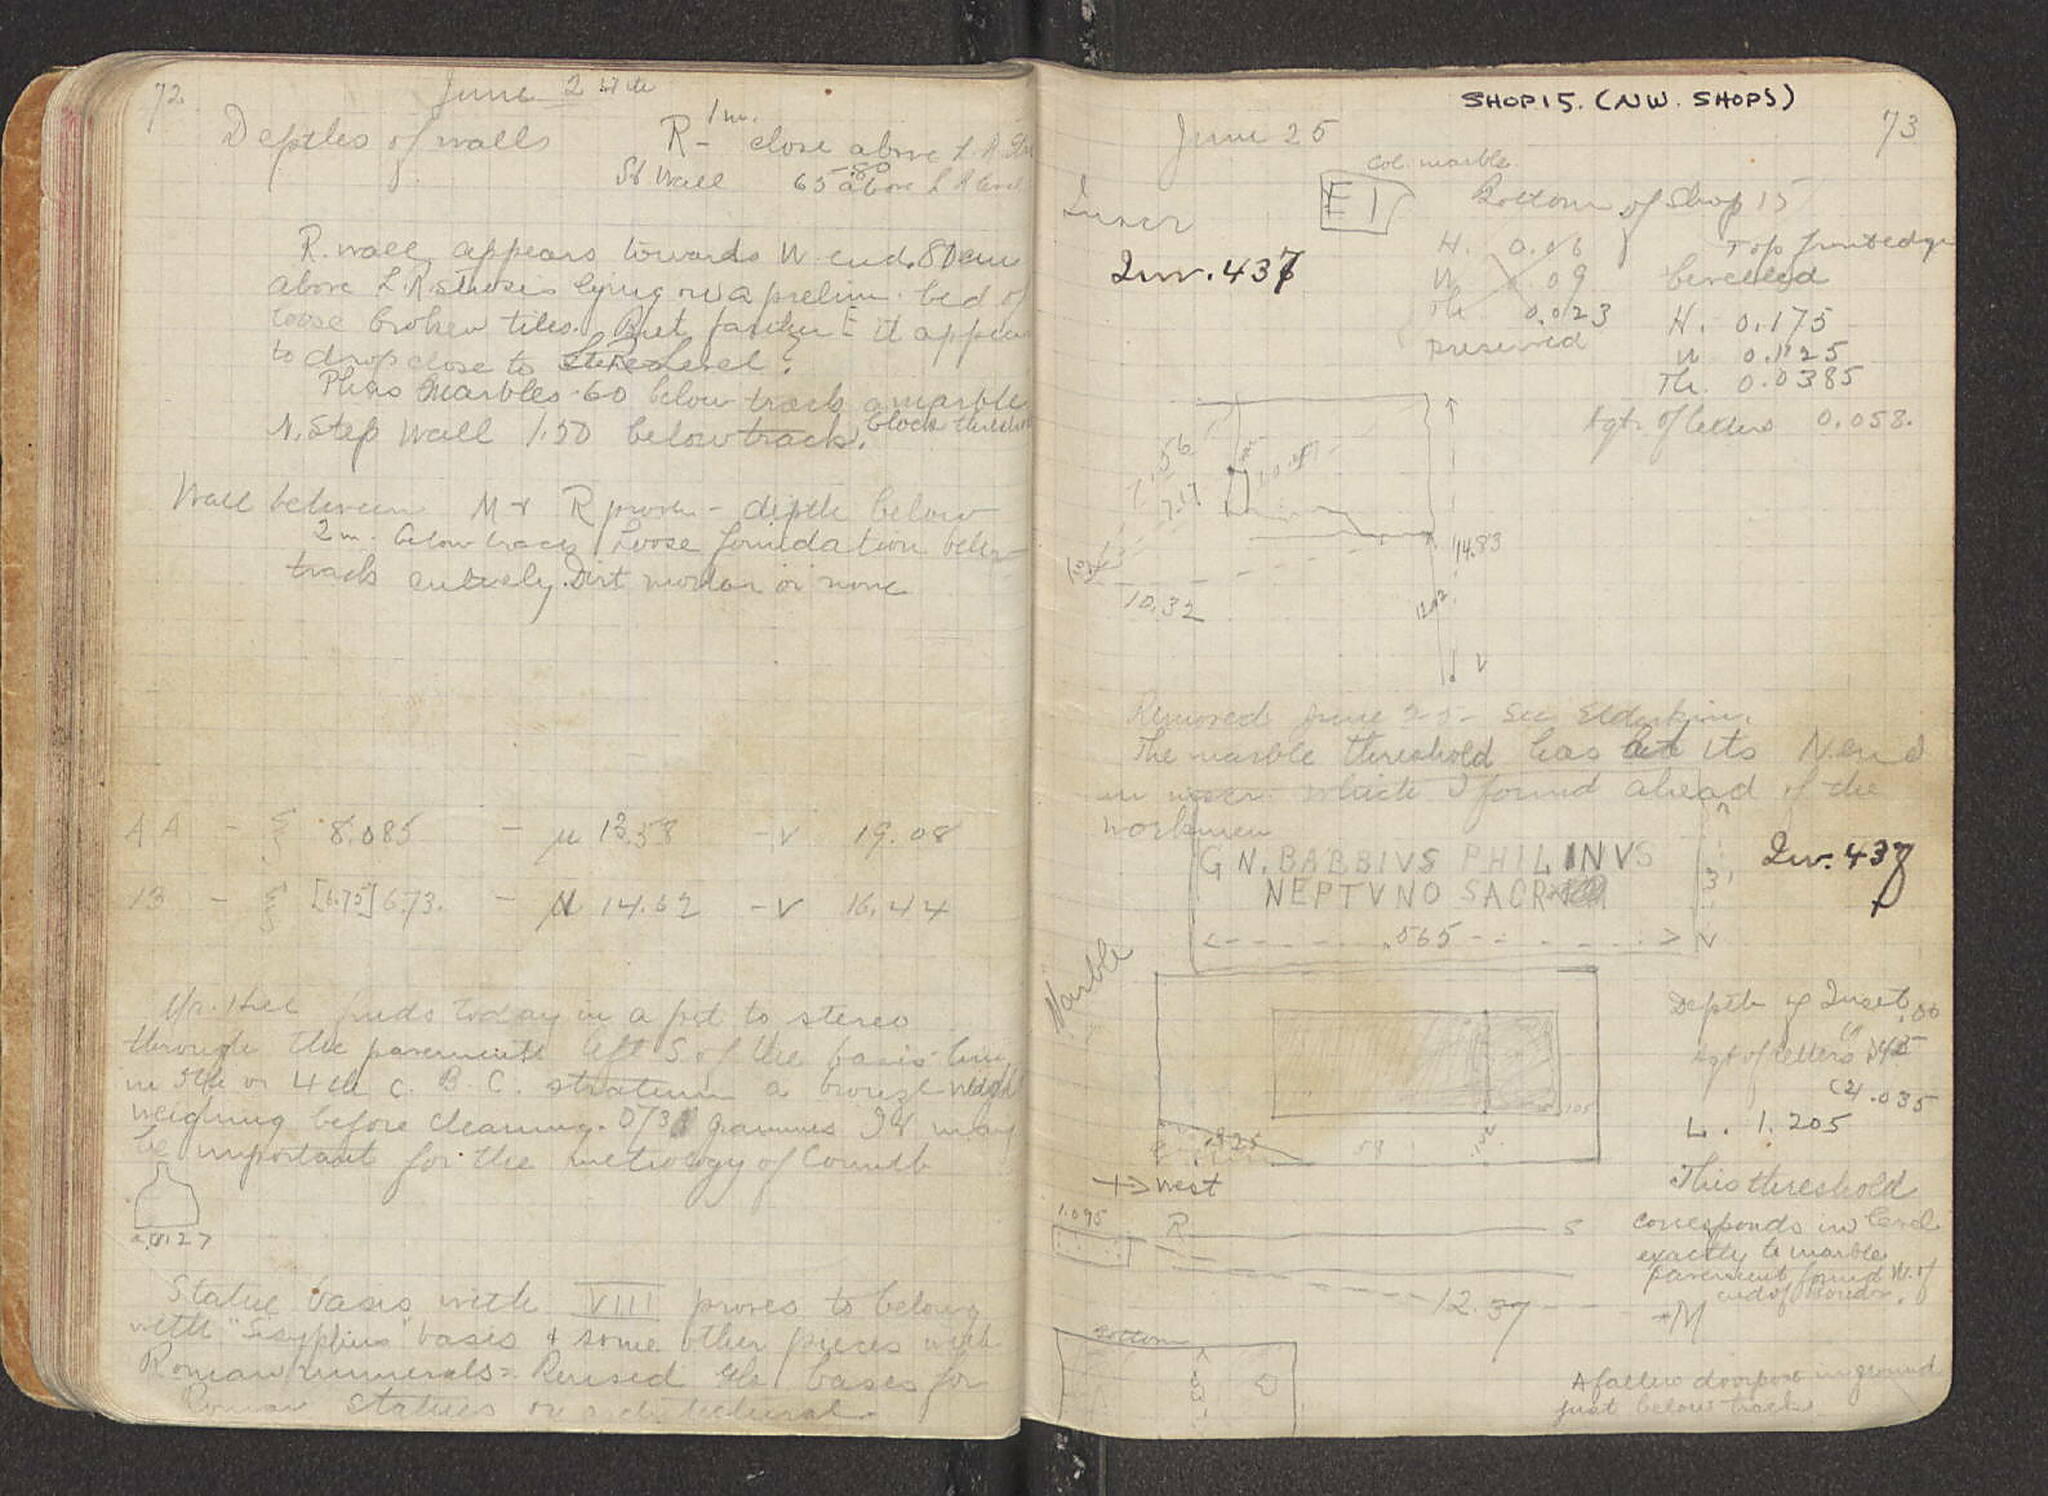 72
June 24th
Depths of walls R - 1m. close above L.R. Str
St Wall 65 above L R level
.80
R. wall appears towards W end. 80cm
above L.R. stucosis lying on a prelim. bed of
loose broken tiles. But farther E it appears
to drop close to level?
Phas Marbles .60 below track a marble
N. Step Wall 1.50 below track. block threshold
Wall between M + R prom - depth below
2m. below track Loose foundation below
track entirely. Dirt mortar or none
AA - ξ 8.085 - μ 13.58 - ν 19.08
13 - ξ [6.75] 6.73. - μ 14.62 - ν 16.44
Mr. Hill finds today in a pit to stereo
through the pavement left S. of the basis - low
in 5th or 4th C. B. C. stratum a bronze weight
weighing before cleaning. grammes It may
be important for the metrology of Corinth
Statue basis with VIII proves to belong
with "Sisyphus" basis & some other pieces with
Roman numerals = Reused Gk. bases for
Roman statues or architectural.
SHOP 15. (NW. SHOPS)
73
June 25
Col. marble
Inscr E1 Bottom of Shop 15
Inv. 437
H. 0.06 Top front edge
W .09 bevelled
Th. 0.023 H. 0.175
preserved W 0.1125
Th. 0.0385
Hgt. of letters 0.058.
7.56
7.17
14.83
10.32
12.92
ν
Removed June 25 - See Elderkin.
The marble threshold has at its N. end
an inscr. which I found ahead of the
workmen
GN. BABBIVS PHILINVS
NEPTVNO SACR
Inv. 437
.565
Marble
Depth of Inset .06
Hgt of letters (1) .045
(2) .035
L. 1.205
.325
.58
→ West
This threshold
corresponds in level
exactly to marble
pavement found W. of
1.095
R S
12.37 → M
Bottom
A fallen doorpost in ground
just below track